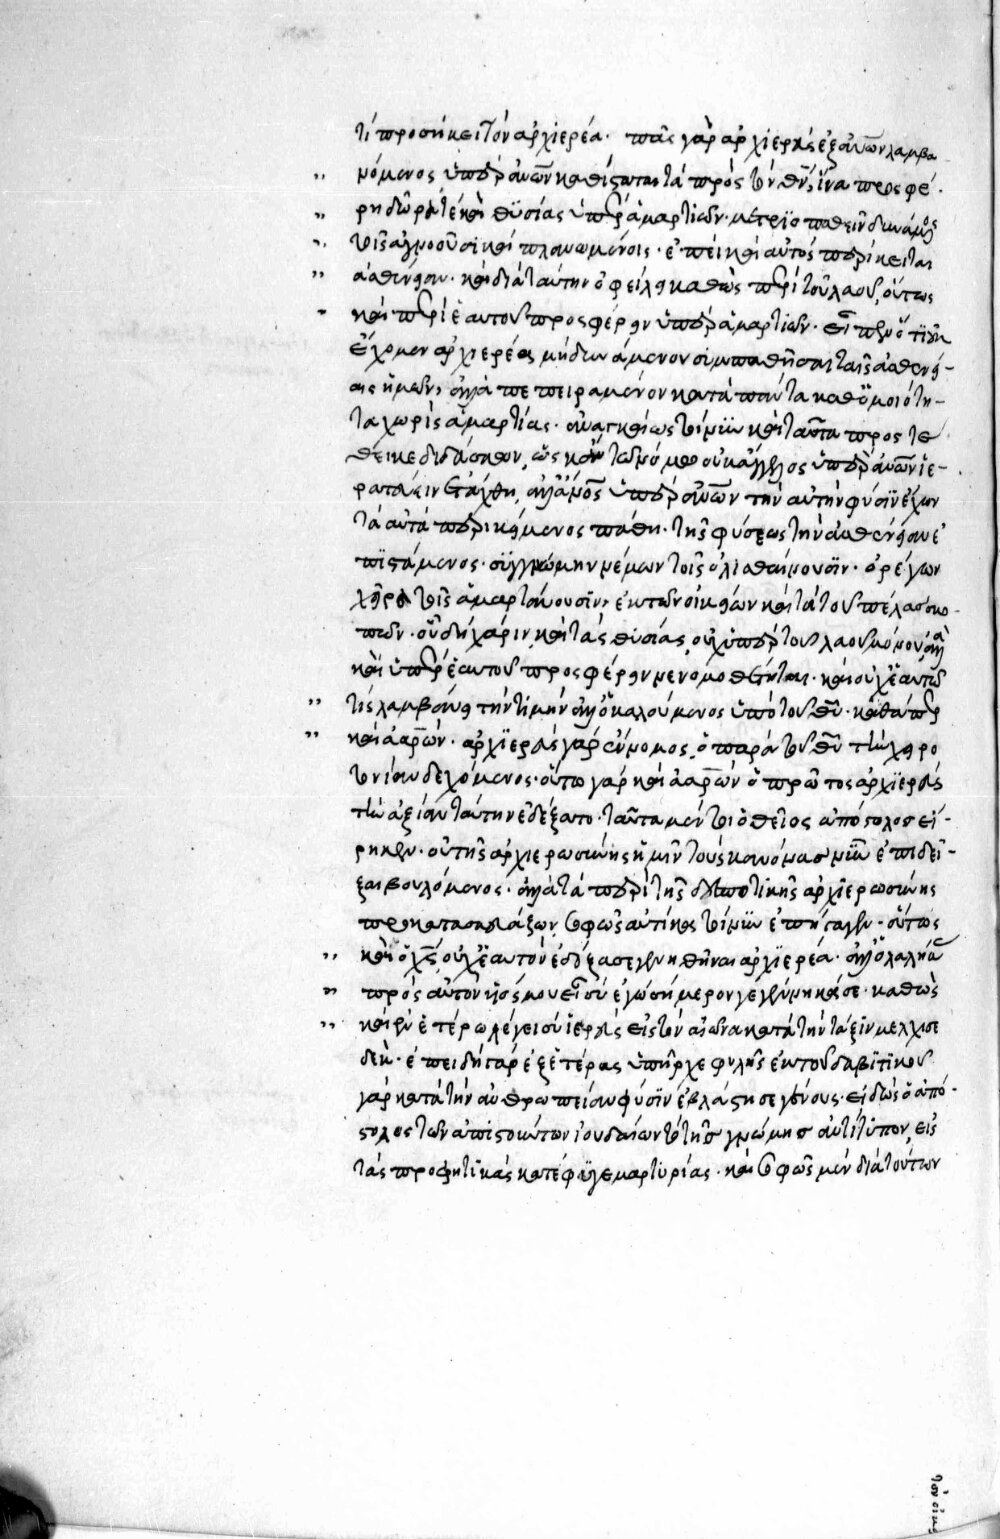 τί προσήκει τὸν ἀρχιερέα· πᾶς γὰρ ἀρχιερεὺς ἐξ ἀνων λαμβα
νόμενος ὑπὲρ ἀνων καθίσταται τὰ πρὸς τὸν θν, ἵνα προσφέ
ρη δῶρά τε καὶ θυσίας ὑπὲρ ἁμαρτιῶν· μετριοπαθεῖν δυνάμενος
τοῖς ἀγνοοῦσι καὶ πλανωμένοις· ἐπεὶ καὶ αὐτὸς περίκειται
ἀσθένειαν· καὶ διὰ ταύτην ὀφείλει καθὼς περὶ τοῦ λαοῦ, οὕτως
καὶ περὶ ἑαυτοῦ προσφέρειν ὑπὲρ ἁμαρτιῶν·
ἔχομεν ἀρχιερέα μὴ δυνάμενον συμπαθῆσαι ταῖς ἀσθενεί
αις ἡμῶν, ἀλλὰ πεπειραμένον κατὰ πάντα καθ' ὁμοιότη
τα χωρὶς ἁμαρτίας· ἀναγκαίως τοίνυν καὶ ταῦτα προστέ
θεικε διδάσκων, ὡς κἂν τῶ νόμω οὐκ ἄγγελος ὑπὲρ ἀνων ἱε
ρατεύειν ἐτάχθη, ἀλλ' ἄνος ὑπὲρ ἀνων τὴν αὐτὴν φύσιν ἔχων
τὰ αὐτὰ περικείμενος πάθη· τῆς φύσεως τὴν ἀσθένειαν ἐ
πιστάμενος· συγγνώμην νέμων τοῖς ὀλισθαίνουσιν· ὀρέγων
χεῖρα τοῖς ἁμαρτάνουσιν, ἐκ τῶν οἰκείων καὶ τὰ τοῦ πέλας σκο
πῶν· οὗ δὴ χάριν, καὶ τὰς θυσίας, οὐχ ὑπὲρ τοῦ λαοῦ μόνον, ἀλλὰ
καὶ ὑπὲρ ἑαυτοῦ προσφέρειν νενομοθέτηται· καὶ οὐχ ἑαυτῶ
τὶς λαμβάνει τὴν τιμὴν ἀλλ' ὁ καλούμενος ὑπὸ τοῦ θυ· καθάπερ
καὶ ἀαρών· ἀρχιερεὺς γὰρ ἔννομος, ὁ παρὰ τοῦ θυ τὴν χειρο
τονίαν δεχόμενος· οὕτω γὰρ καὶ ἀαρὼν ὁ πρῶτος ἀρχιερεὺς
τὴν ἀξίαν ταύτην ἐδέξατο· ταῦτα μέντοι ὁ θεῖος ἀπόστολος εἴ
ρηκεν· οὐ τῆς ἀρχιερωσύνης ἡμῖν τοὺς κανόνας νῦν ἐπιδεῖ
ξαι βουλόμενος· ἀλλὰ τὰ περὶ τῆς δεσποτικῆς ἀρχιερωσύνης
προκατασκευάζων, σαφῶς αὐτίκα τοίνυν ἐπήγαγεν· οὕτως
καὶ ὁ χς, οὐχ ἑαυτὸν ἐδόξασε γενηθῆναι ἀρχιερέα· ἀλλ' ὁ λαλήσας
πρὸς αὐτὸν υἱός μου εἶ σύ ἐγὼ σήμερον γεγέννηκά σε· καθὼς
καὶ ἐν ἑτέρω λέγει σὺ ἱερεὺς εἰς τὸν αἰῶνα κατὰ τὴν τάξιν μελχισε
δέκ· ἐπειδὴ γὰρ ἐξ ἑτέρας ὑπῆρχε φυλῆς ἐκ τοῦ δαβιτικοῦ
γὰρ κατὰ τὴν ἀνθρωπείαν φύσιν ἐβλάστησε γένους· εἰδὼς ὁ ἀπό
στολος τῶν ἀπιστούντων ἰουδαίων τὸ τῆς γνώμης ἀντίτυπον, εἰς
τὰς προφητικὰς κατέφυγε μαρτυρίας· καὶ σαφῶς μὲν διὰ τούτων